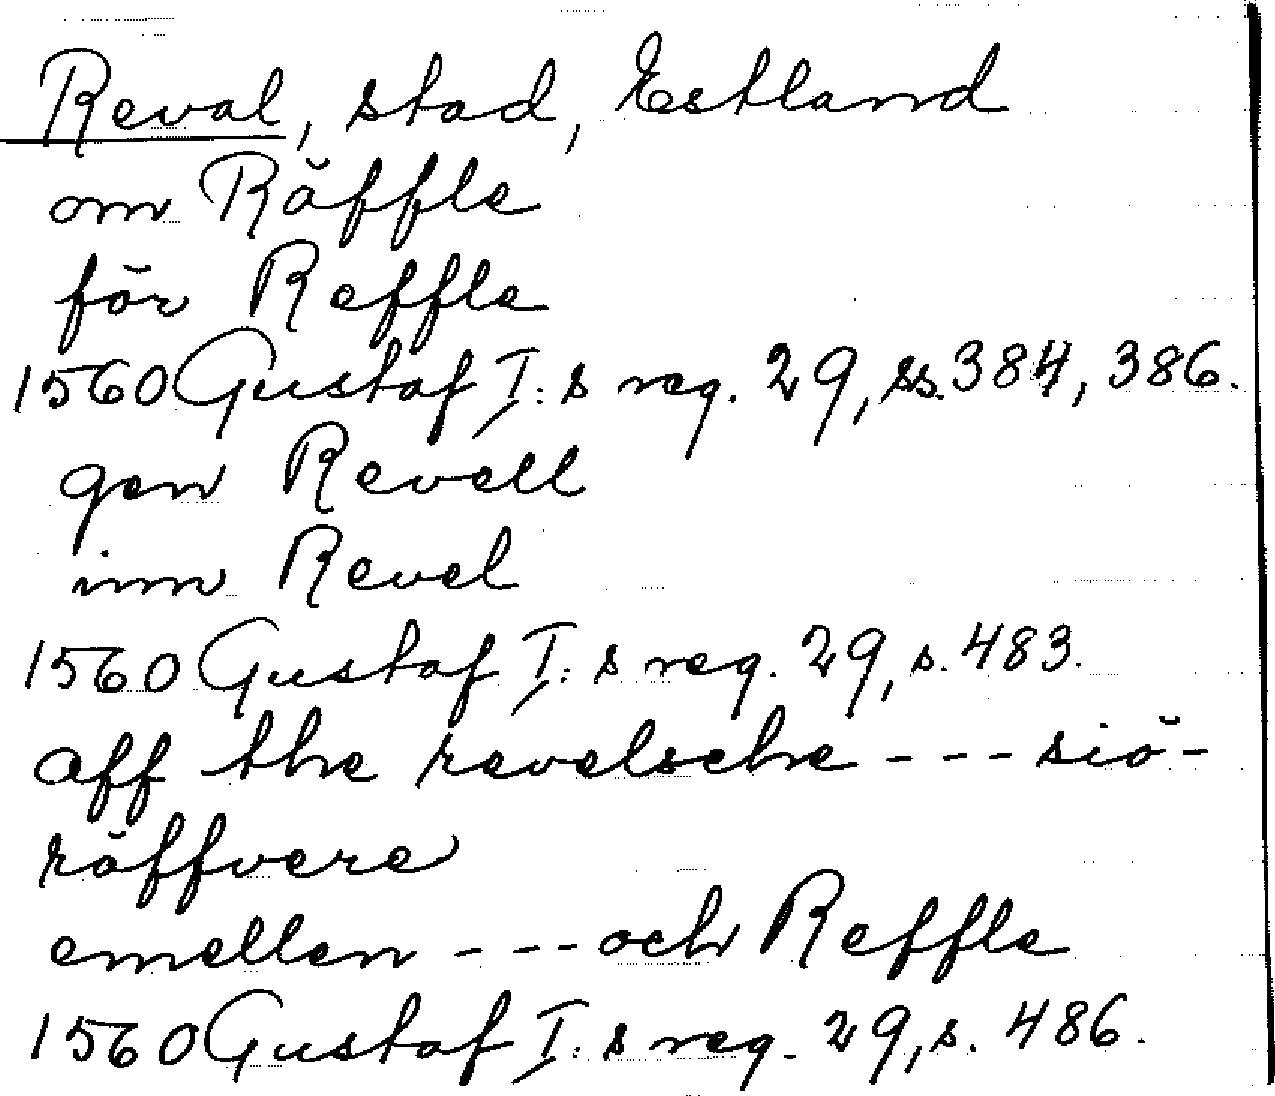 Reval, stad, Estland
om Räffle
för Reffle
1560 Gustaf I:s reg. 29, ss. 384, 386.
gen Revell
inn Revel
1560 Gustaf I:s reg. 29, s. 483.
aff the revelsche --- siö-
röffvere
emellan --- och Reffle
1560 Gustaf I:s reg. 29, s. 486.